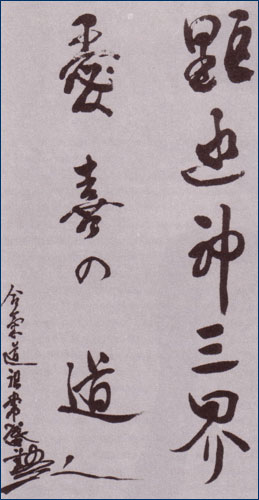 顕幽神三界
愛喜の道
合氣道祖常盛